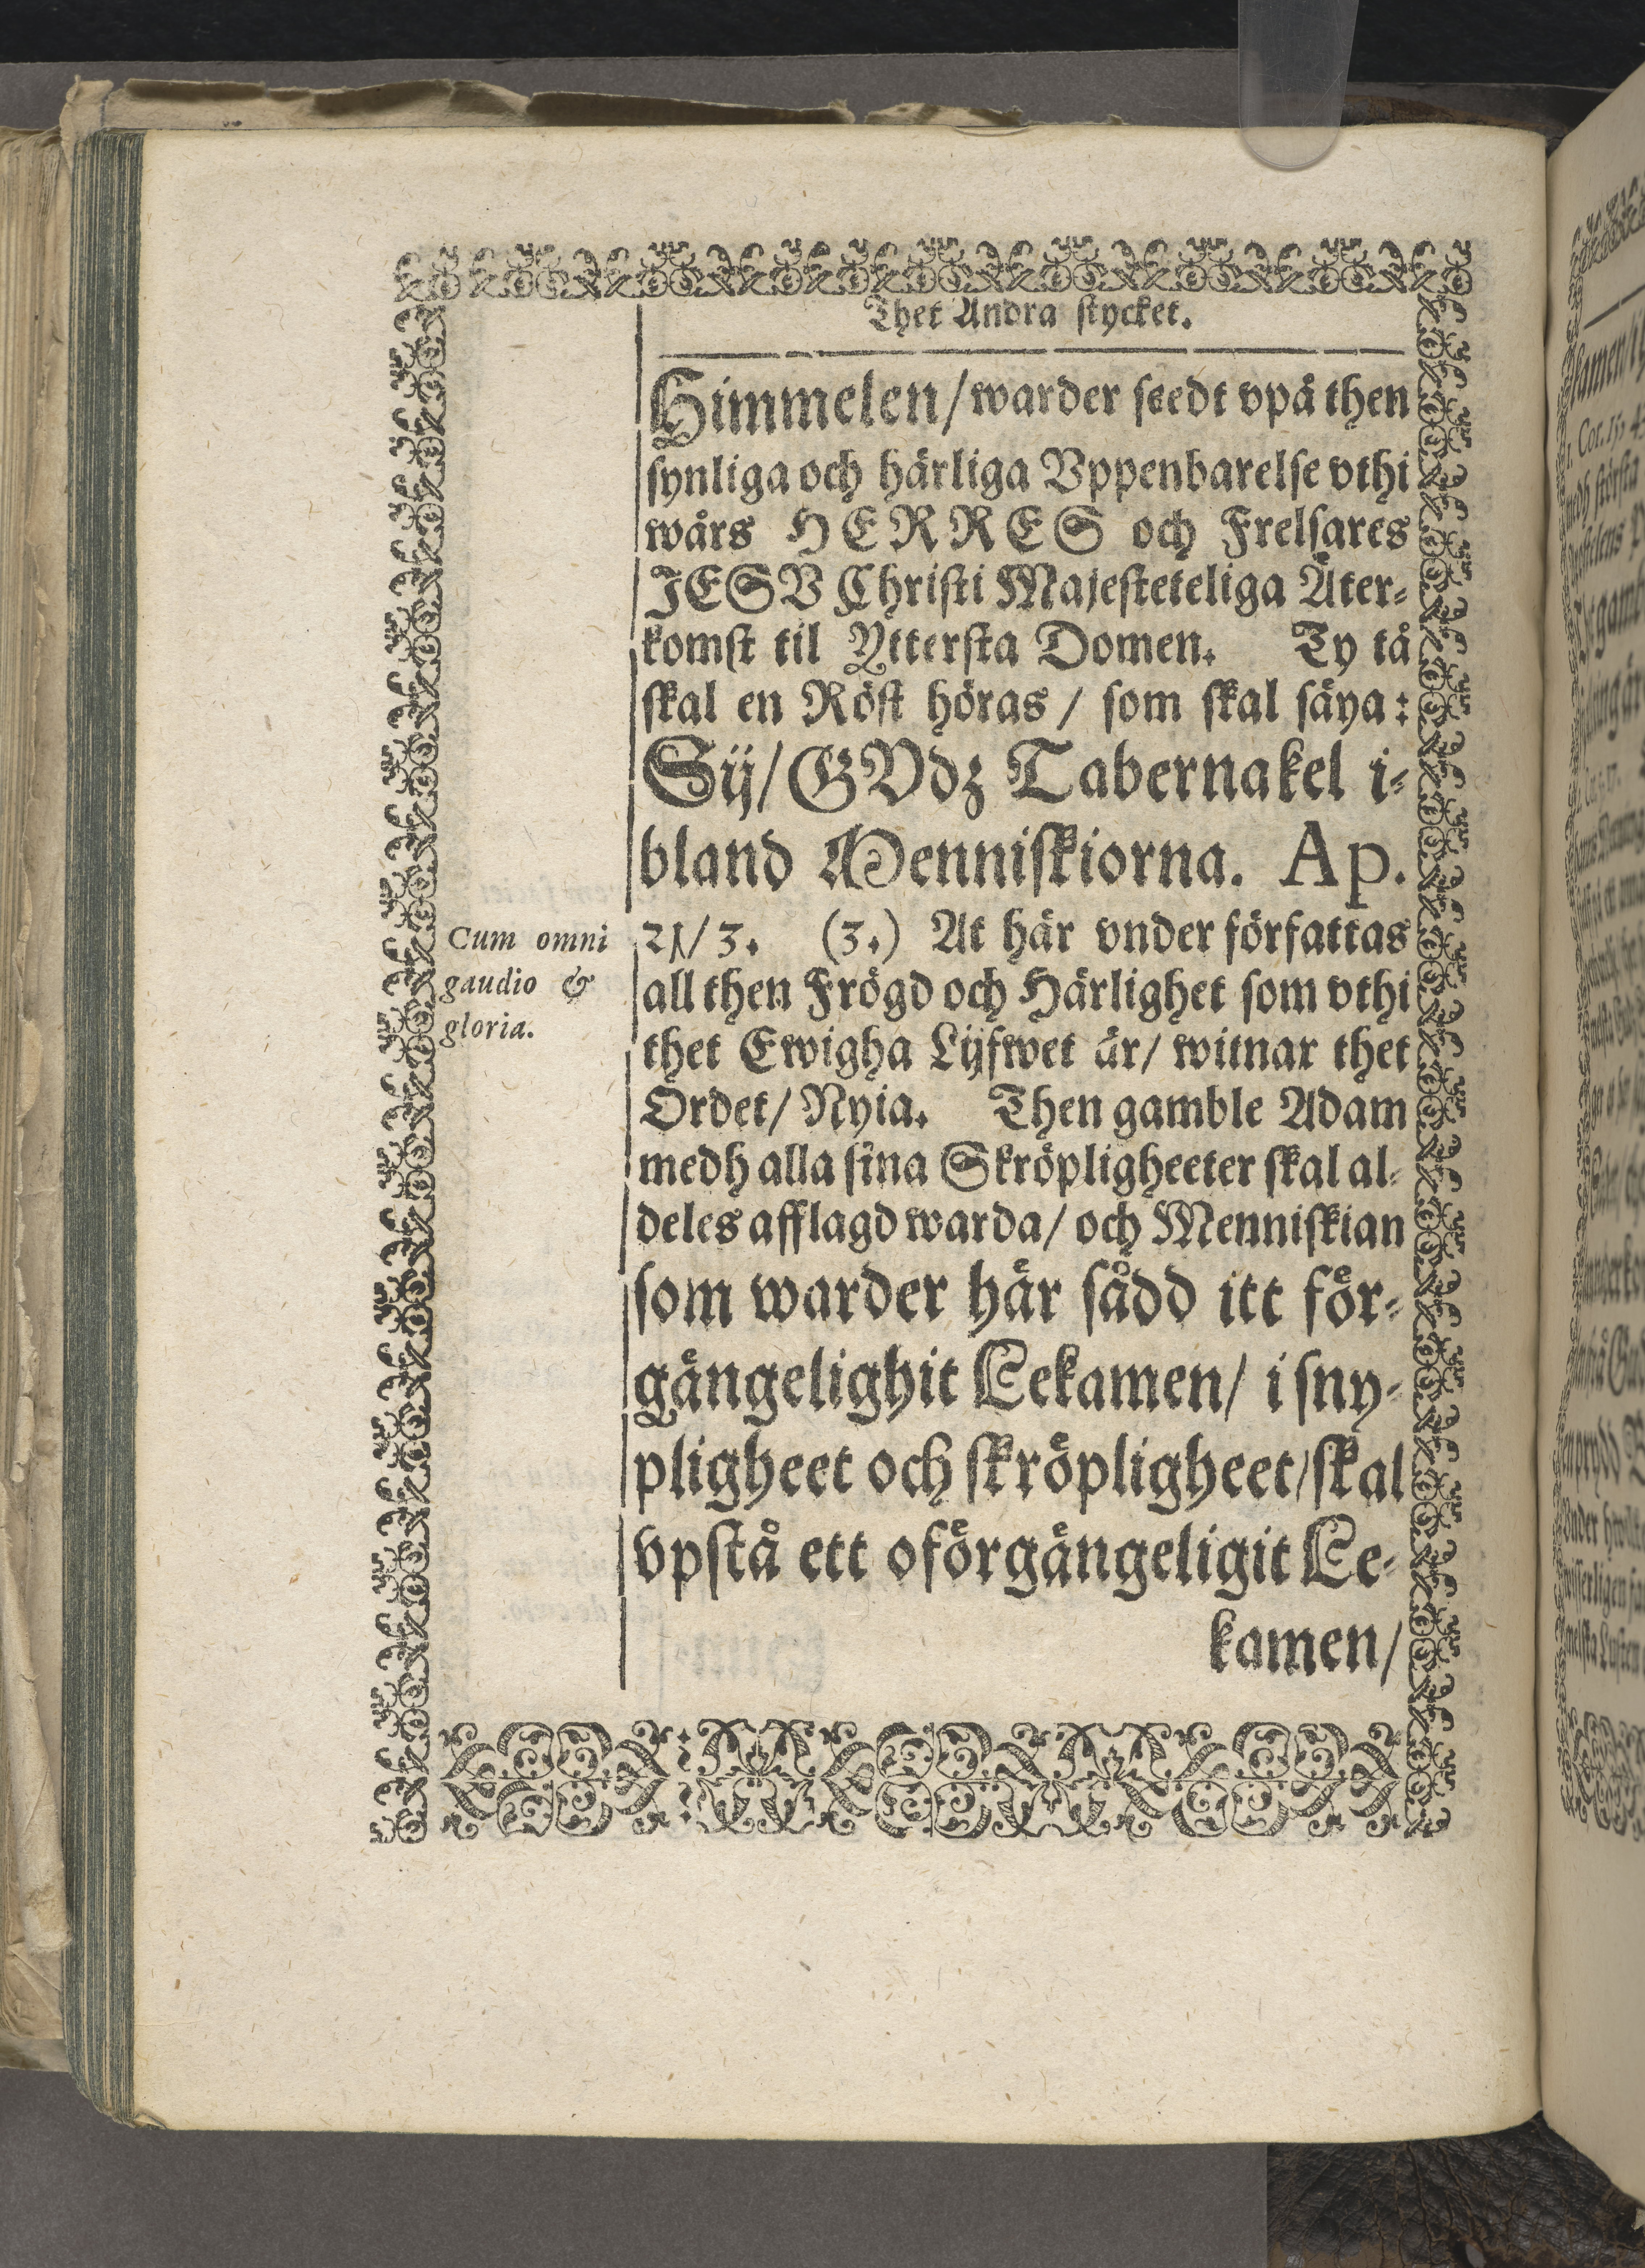 Thet Andra stycket.
Himmelen/ warder seedt vpå then
synliga och härliga Vppenbarelse vthi
wårs HERRES och Frelsares
JESV Christi Majesteteliga Åter-
komst til Yttersta Domen. Ty tå
skal en Röst höras / som skal säya:
Sij/ GVdz Tabernakel i-
bland Menniskiorna. Ap.
21/ 3. (3.) At här vnder författas
Cum omni
gaudio &
gloria.
all then Frögd och Härlighet som vthi
thet Ewigha Lijfwet är/ witnar thet
Ordet/ Nyia. Then gamble Adam
medh alla sina Skröpligheeter skal al-
deles afflagd warda/ och Menniskian
som warder här sådd itt för-
gängelighit Lekamen/ i sny-
pligheet och skröpligheet/ skal
vpstå ett oförgängeligit Le-
kamen/